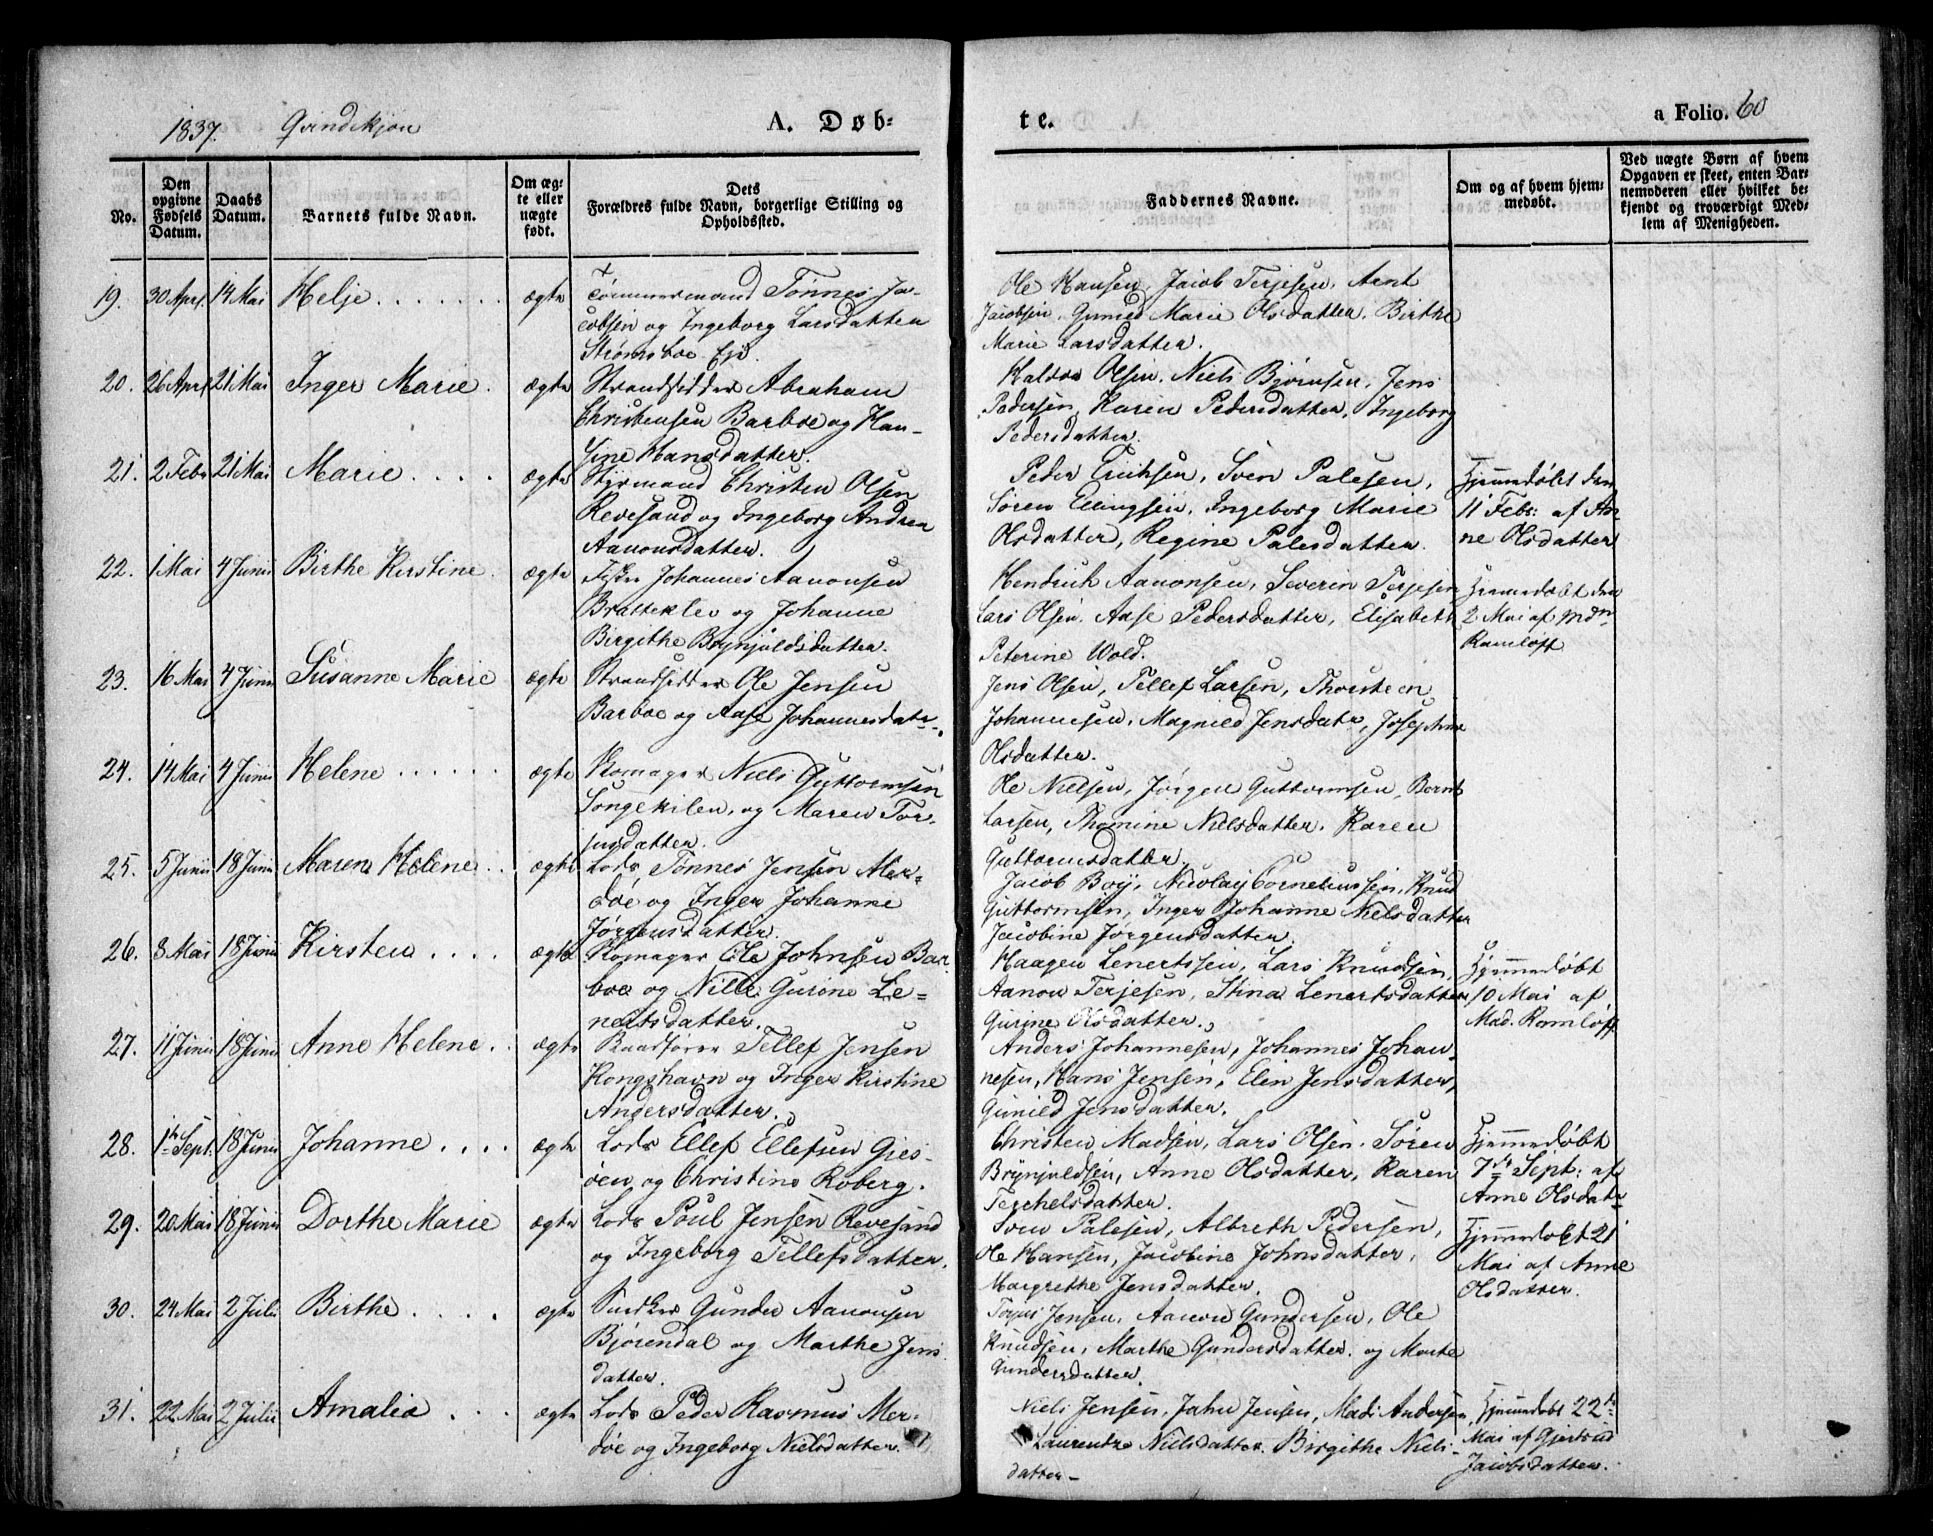 1837. Qvindekjøn A. Døb- te. a Folio. 60
No.
Den opgivne Fødsels Datum.
Daabs Datum.
Barnets fulde Navn.
Om ægte eller uægte født.
Dets Forældres fulde Navn, borgerlige Stilling og Opholdssted.
Faddernes Navne.
Om og af hvem hjemmedøbt.
Ved uægte Børn af hvem Opgaven er skeet, enten Barnemoderen eller hvilket bekjendt og troværdigt Medlem af Menigheden.
19. 30 Apr. 14 Mai Helje ægte
Tømmermand Tønnes Ja-
cobsen og Ingeborg Larsdatter
Strømsboe Eje.
Ole Hansen, Jacob Terjesen, Arnt
Jacobsen, Gunild Marie Olsdatter, Birthe
Marie Larsdatter.
20. 26 Apr. 21 Mai Inger Marie. ægte
Strandsidder Abraham
Christensen Barboe og Han-
sine Hansdatter.
Haldor Olsen, Niels Bjørnsen, Jens
Pedersen, Karen Pedersdatter, Ingeborg
Pedersdatter.
21. 2 Febr 21 Mai Marie ægte
Styrmand Christen Olsen
Revesand og Ingeborg Andrea
Aanonsdatter.
Peder Eriksen, Sven Palesen,
Søren Ellingsen, Ingeborg Marie
Olsdatter, Regine Palesdatter.
Hjemmedøbt den
11 Febr: af An-
ne Olsdatter
22. 1 Mai 4 Junii Birthe Kirstine. ægte
Fisker Johannes Aanonsen
Bratteklev og Johanne
Birgithe Brynjuldsdatter.
Hendrich Aanonsen, Severin Terjesen
Lars Olsen, Aase Pedersdatter, Elisabeth
Peterine Wold.
Hjemmedøbt den
2 Mai af Mdm
Ramløff
23. 16 Mai 4 Junii Susanne Marie ægte
Strandsidder Ole Jensen
Barboe og Aase Johannesdatr.
Jens Olsen, Tellef Larsen, Thorsteen
Johannesen, Magnild Jensdatr, Josephine
Olsdatter.
24. 14 Mai 4 Junii Helene ægte
Skomager Niels Guttormsen
Songekilen, og Maren Tor-
jusdatter.
Ole Nielsen, Jørgen Guttormsen, Bernt
Larsen, Thomine Nielsdatter, Karen
Guttormsdatter.
25. 5 Junii 18 Junii Maren Helene ægte
Lods Tønnes Jensen Mer-
døe og Inger Johanne
Jørgensdatter.
Jacob Boy, Nicolay Corneliussen, Knud
Guttormsen, Inger Johanne Nielsdatter
Jacobine Jørgensdatter.
26. 8 Mai 18 Junii Kirsten ægte
Skomager Ole Johnsen Bar-
boe og Nille Gurine Le-
nertsdatter.
Haagen Lenertssen, Lars Knudsen,
Aanon Terjesen, Stina Lenertsdatter
Gurine Olsdatter.
Hjemmedøbt
10 Mai af
Mad. Romløff
27. 11 Junii 18 Junii Anne Helene ægte
Baadfører Tellef Jensen
Kongshavn og Inger Kirstine
Andersdatter.
Anders Johannesen, Johannes Johan-
nesen, Hans Jensen, Elen Jensdatter,
Gunild Jensdatter.
28. 1te Sept. 18 Junii Johanne ægte
Lods Ellef Ellefsen Gies-
øen og Christine Roberg.
Christen Madsen, Lars Olsen, Søren
Brynjuldsen, Anne Olsdatter, Karen
Terchelsdatter.
Hjemmedøbt
7de Sept: af
Anne Olsdatr
29. 20 Mai 18 Junii Dorthe Marie ægte
Lods Poul Jensen Revesand
og Ingeborg Tellefsdatter.
Sven Palesen, Albreth Pedersen,
Ole Hansen, Jacobine Johnsdatter,
Margrethe Jensdatter.
Hjemmedøbt 21
Mai af Anne
Olsdatter.
30. 24 Mai 2 Julii Birthe ægte
Snedker Gunder Aanonsen
Bjørendal og Marthe Jens
datter.
Torjus Jensen, Aanon Gundersen, Ole
Knudsen, Marthe Gundersdatter, og Marte
Gundersdatter.
31. 22 Mai 2 Julii Amalia ægte
Lods Peder Rasmus Mer-
døe og Ingeborg Nielsdatter.
Niels Jensen, Jahn Jensen, Mads Andersen,
Laurendze Nielsdatter, Birgithe Niels-
datter
Hjemmedøbt 22de
Mai af Gjertrud
Jacobsdatter.